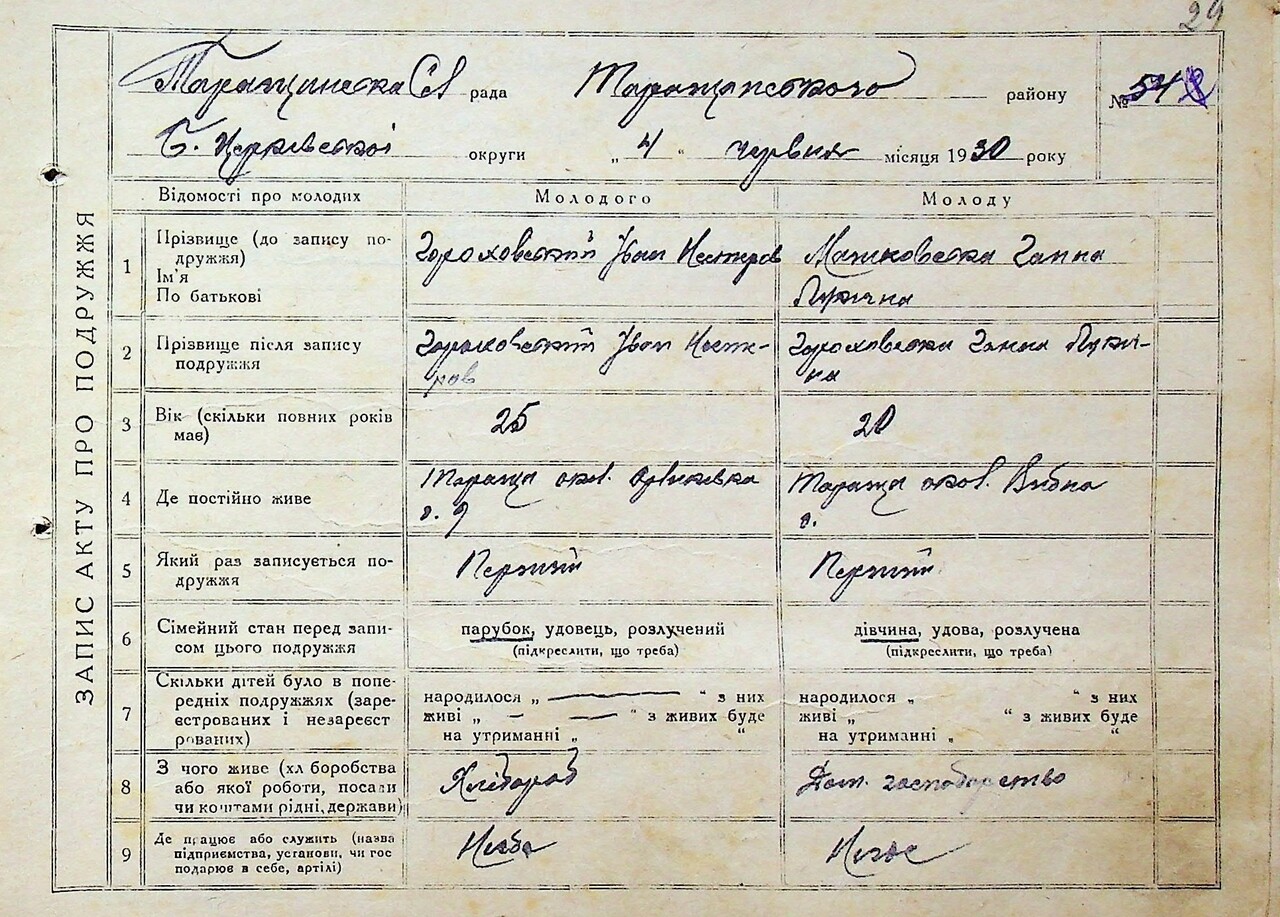 29
Таращинська С/Р рада Таращанського району № 54
Б. Церківської округи „ 4 “ червня місяця 1930 року
ЗАПИС АКТУ ПРО ПОДРУЖЖЯ
Відомості про молодих Молодого Молоду
1 Прізвище (до запису по-
дружжя)
Ім'я
По батькові
Гороховський Іван Нестеров
Машковська Ганна
Лукічна
2 Прізвище після запису
подружжя
Гороховський Іван Несте-
ров
Гороховська Ганна Лукі-
чна
3 Вік (скільки повних років
має)
25
20
4 Де постійно живе
Тараща окол.
Тараща окол.
5 Який раз записується по-
дружжя
Перший
Перший
6 Сімейний стан перед запи-
сом цього подружжя
парубок, удовець, розлучений
(підкреслити, що треба)
дівчина, удова, розлучена
(підкреслити, що треба)
7 Скільки дітей було в попе-
редніх подружжях (заре-
єстрованих і незареєст
рованих)
народилося „ “ з них
живі „ “ з живих буде
на утриманні „ “
народилося „ “ з них
живі „ “ з живих буде
на утриманні „ “
8 З чого живе (хл боробства
або якої роботи, посади
чи коштами рідні, держави)
Хлібороб
Дом. господарство
9 Де працює або служить (назва
підприємства, установи, чи гос
подарює в себе, артілі)